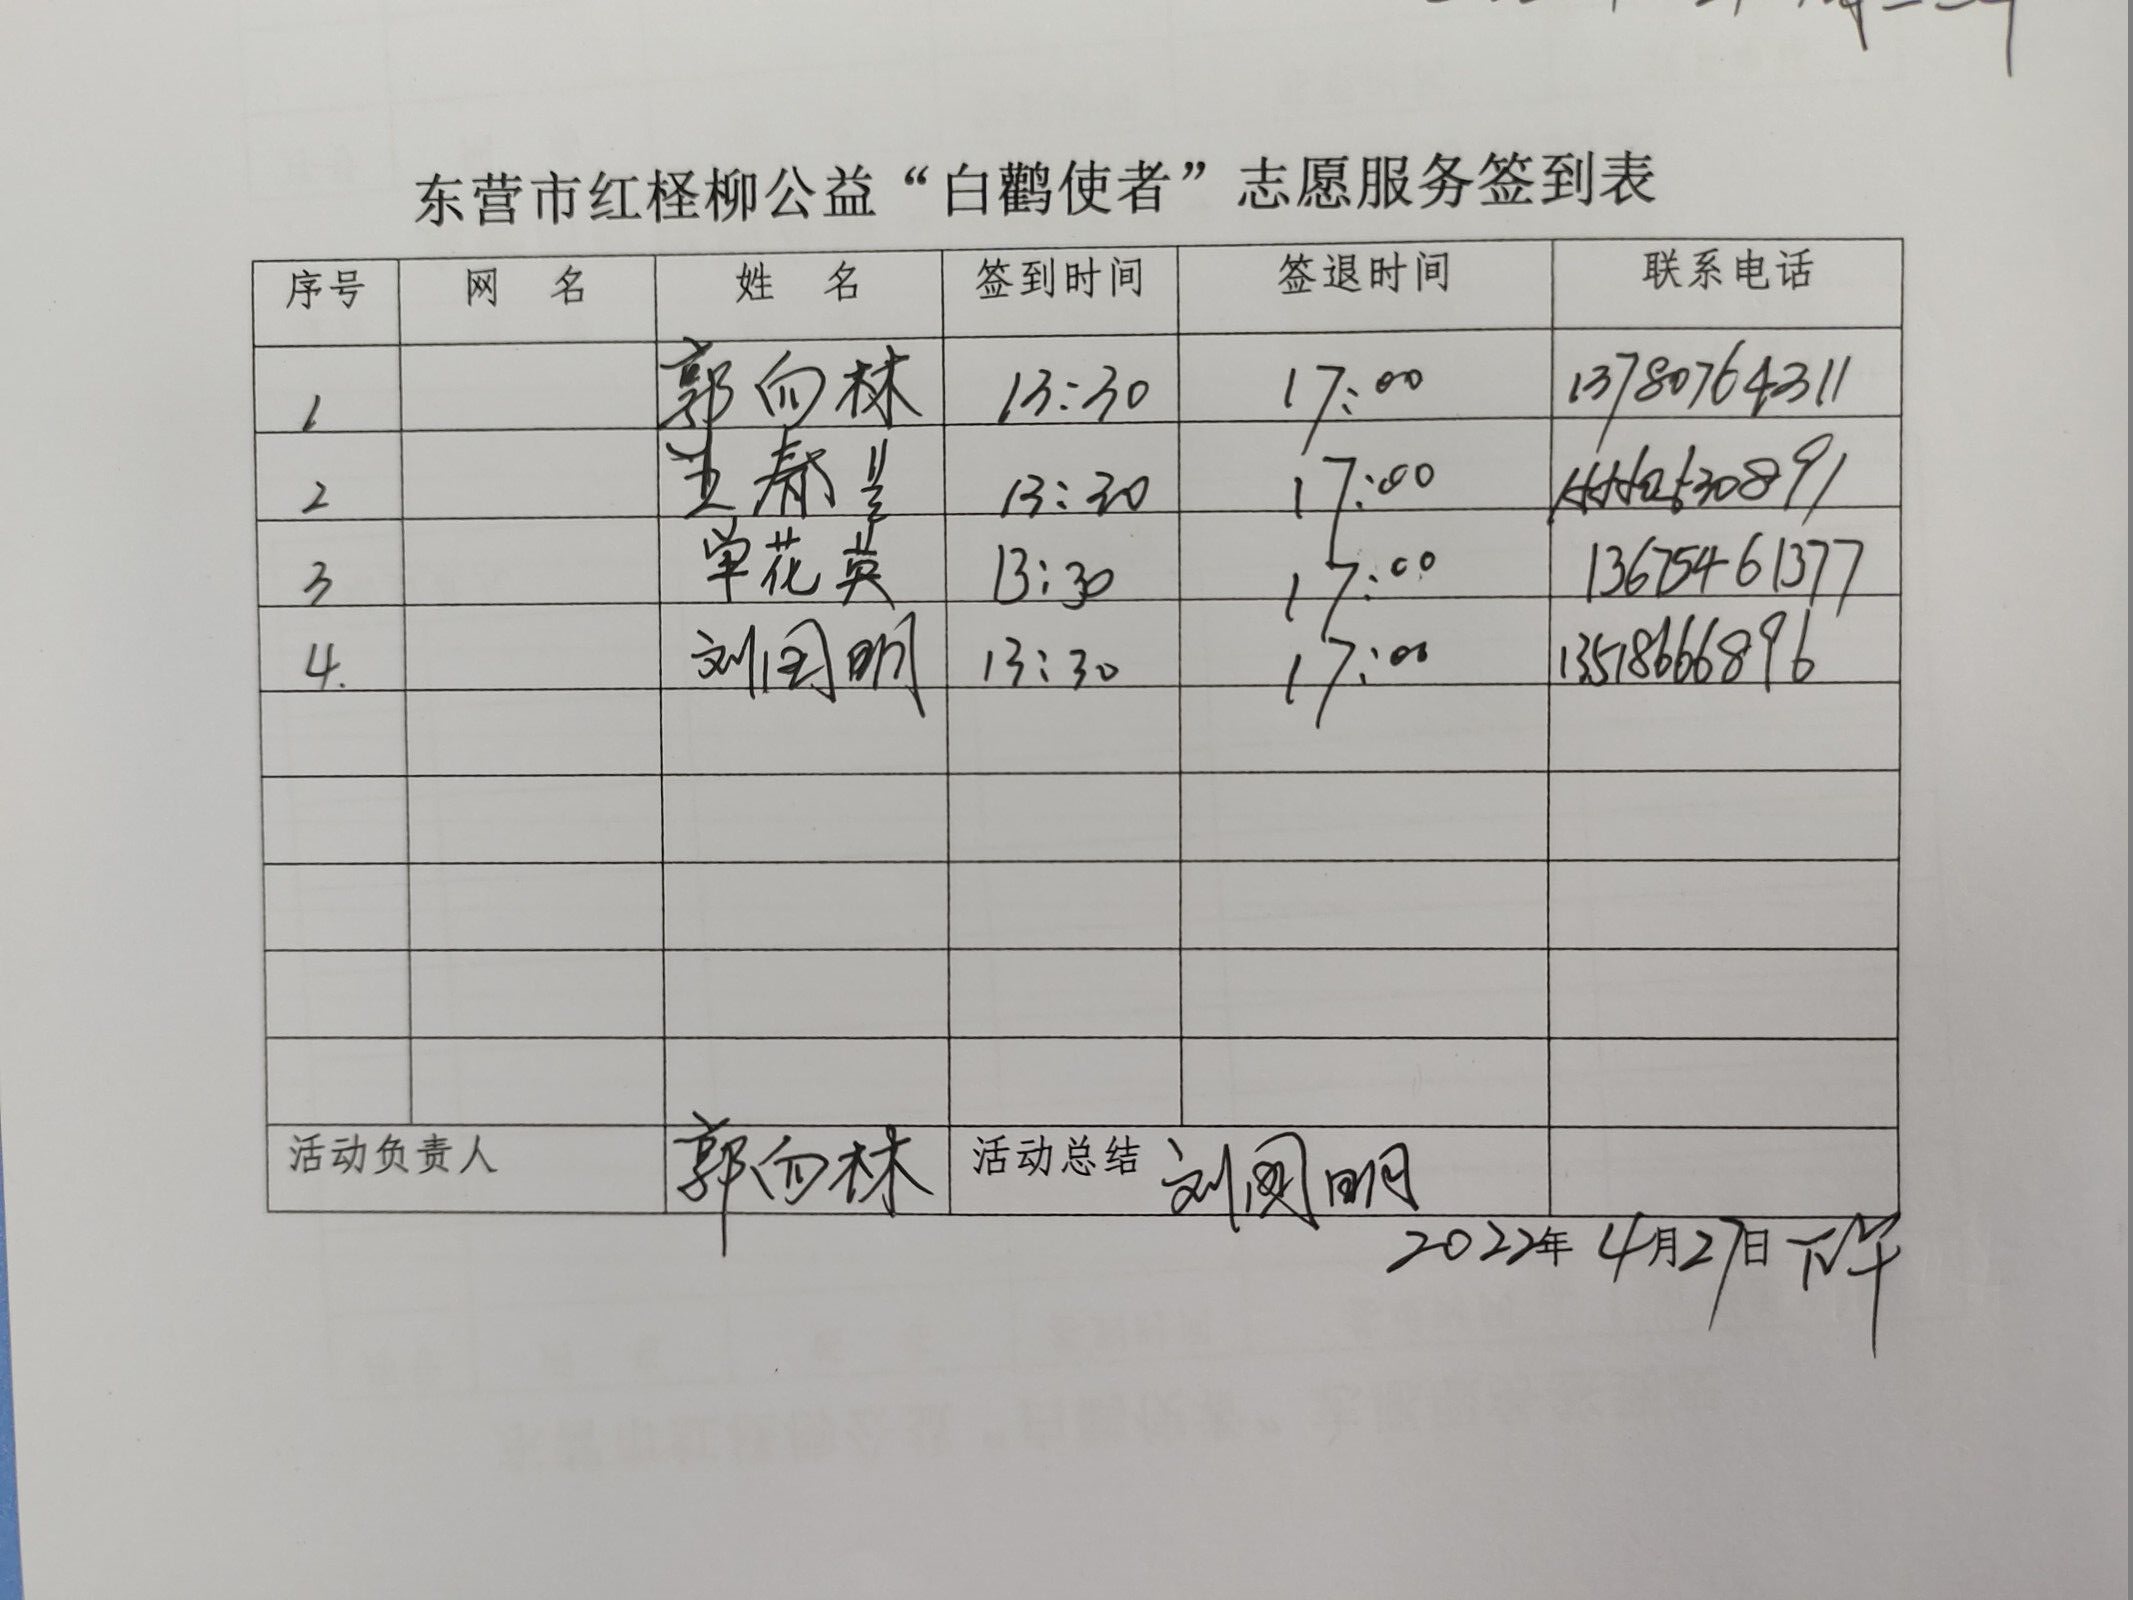 东营市红柽柳公益“白鹳使者”志愿服务签到表
序号 网 名 姓 名 签到时间 签退时间 联系电话
1 郭向林 13:30 17:00 13780764311
2 王春兰 13:30 17:00
3 单花英 13:30 17:00 13675461377
4. 刘国明 13:30 17:00 13518666896
活动负责人 郭向林 活动总结 刘国明
2022年 4月27日 下午